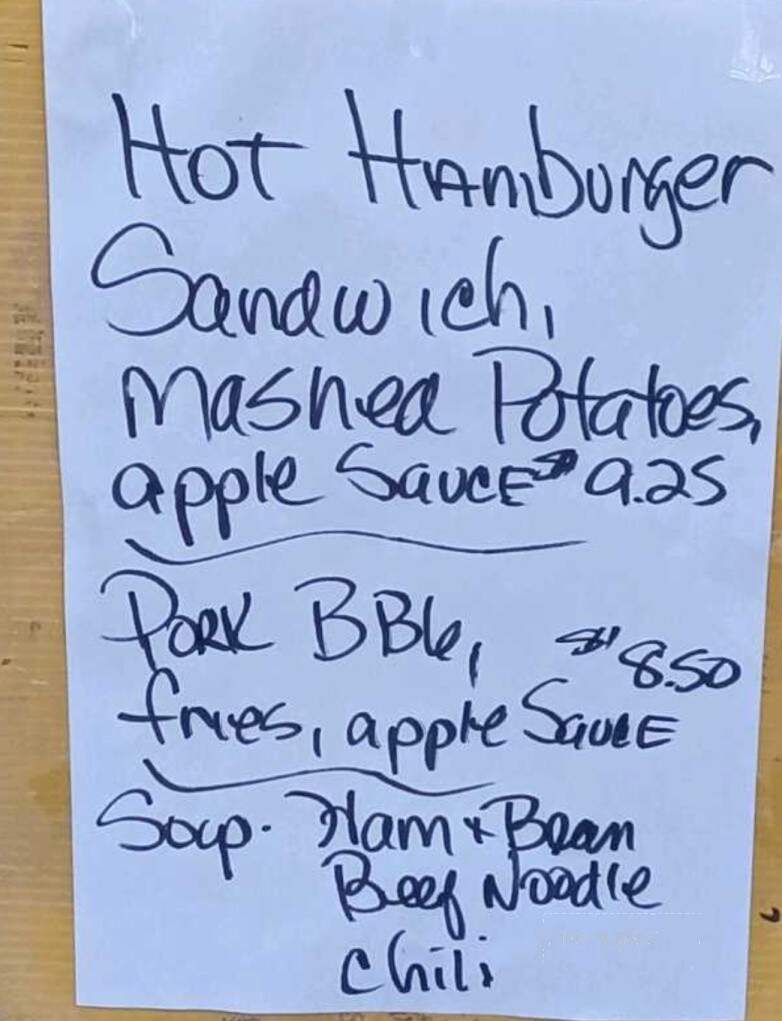 Hot Hamburger
Sandwich,
Mashed Potatoes,
apple Sauce $9.25
Pork BBG,
$8.50
fries, apple Sauce
Soup. Ham & Bean
Beef Noodle
Chili